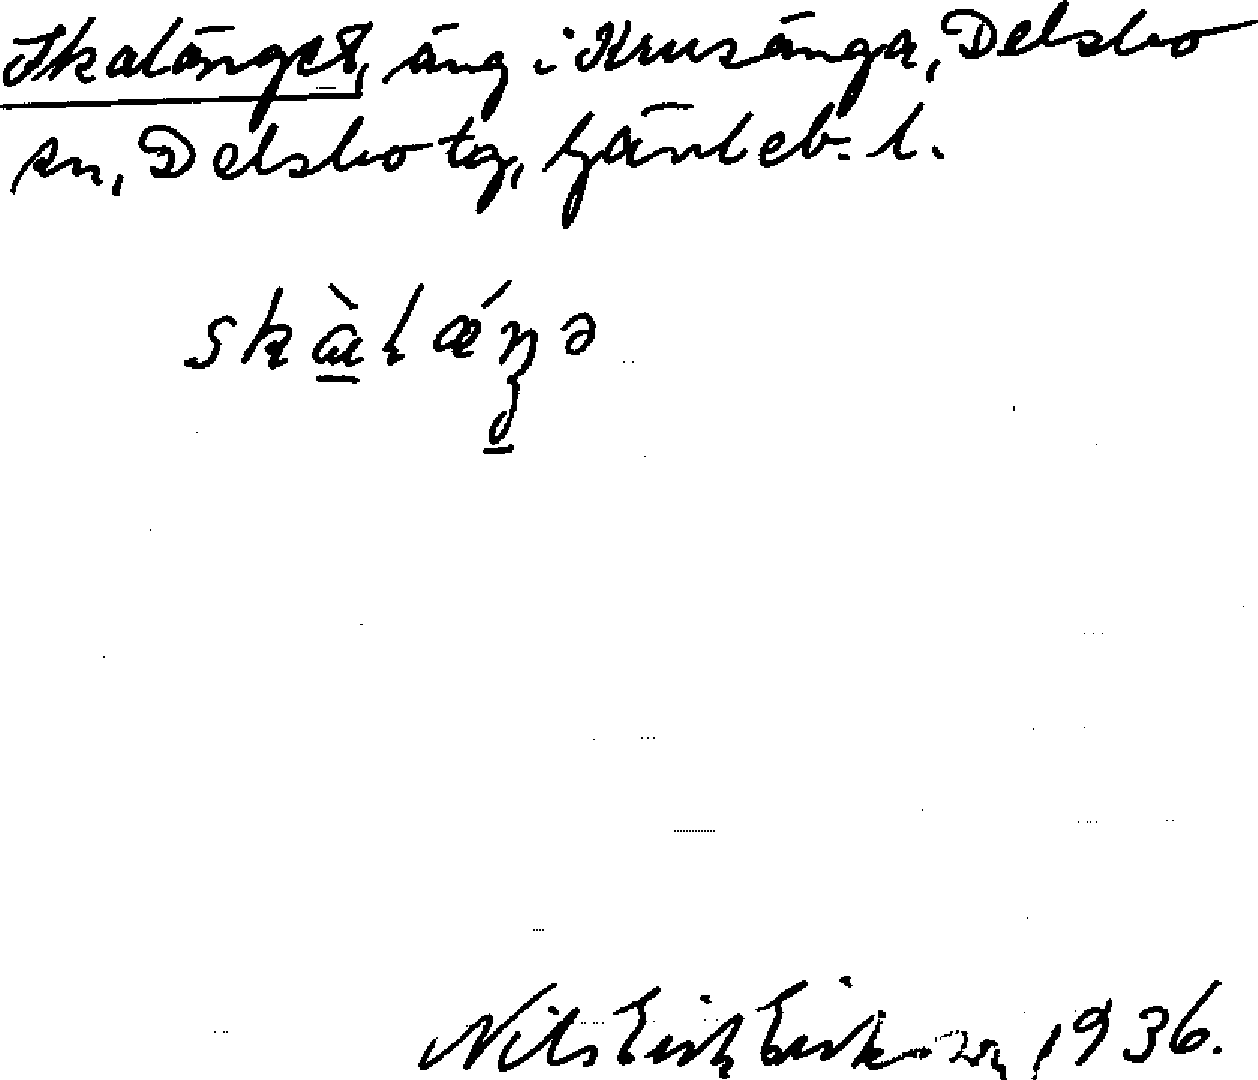 Skalänget, äng i Krusänga, Delsbo
sn, Delsbo tg, Gävleb. l.
skàlǽŋə
Nils Erik Eriksson, 1936.